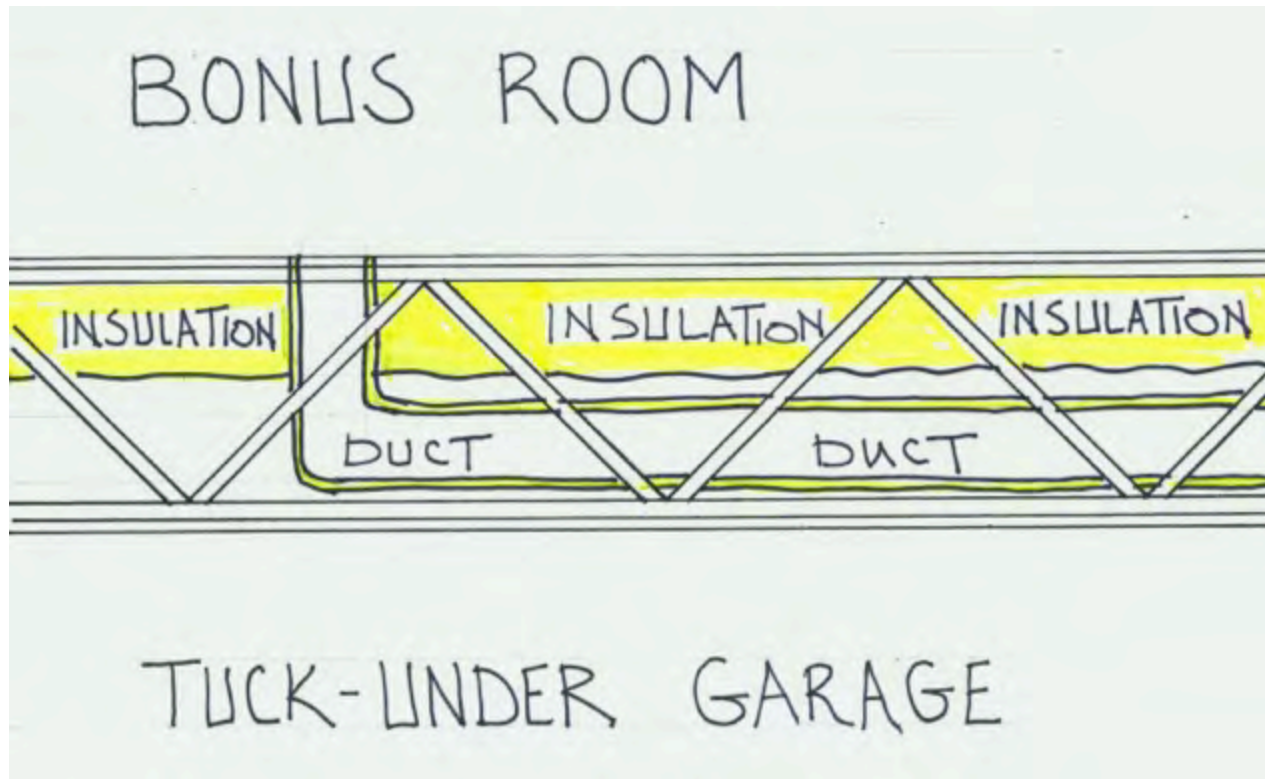 BONUS ROOM
INSULATION INSULATION INSULATION
DUCT DUCT
TUCK-UNDER GARAGE